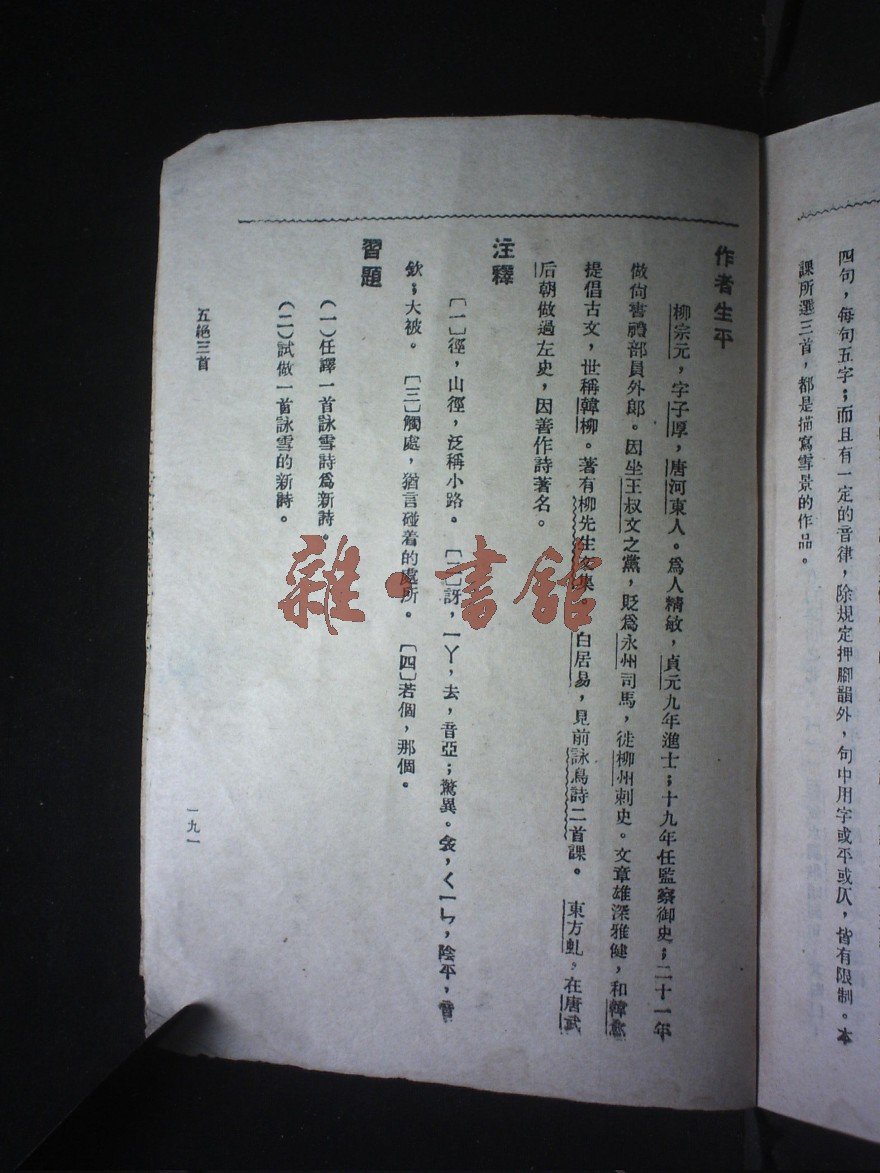 四句，每句五字；而且有一定的音律，除規定押腳韻外，句中用字或平或仄，皆有限制。本
課所選三首，都是描寫雪景的作品。
作者生平
柳宗元，字子厚，唐河東人。爲人精敏，貞元九年進士；十九年任監察御史；二十一年
做尙書禮部員外郎。因坐王叔文之黨，貶爲永州司馬，徙柳州刺史。文章雄深雅健，和韓愈
提倡古文，世稱韓柳。著有柳先生文集。白居易，見前詠鳥詩二首課。　東方虬。在唐武
后朝做過左史，因善作詩著名。
注釋
〔一〕徑，山徑，泛稱小路。　〔二〕訝，ㄧㄚ，去，音亞；驚異。衾，ㄑㄧㄣ，陰平，音
欽；大被。　〔三〕觸處，猶言碰着的處所。　〔四〕若個，那個。
習題
（一）任譯一首詠雪詩爲新詩。
（二）試做一首詠雪的新詩。
五絕三首
一九一
雜·書館